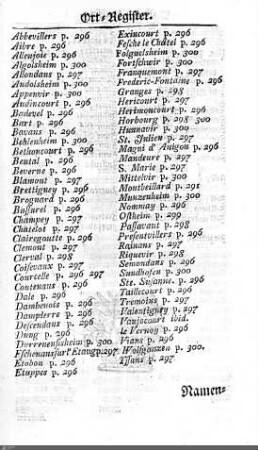 Ort-Register.
Abbevillers p. 296
Aibre p. 296
Allenjoie p. 296
Algolsheim p. 300
Allondans p. 297
Andolsheim p. 300
Appenwir p. 300
Audincourt p. 296
Badevel p. 296
Bart p. 296
Bavans p. 296
Beblenheim p. 300
Bethoncourt p. 296
Beutal p. 296
Beverne p. 296
Blamont p. 297
Brettigney p. 296
Brognard p. 296
Bussurel p. 296
Champey p. 297
Châtelot p. 297
Clairegoutte p. 296
Clemont p. 297
Clerval p. 298
Coisevaux p. 297
Courcelle p. 296 297
Contenans p. 296
Dale p. 296
Dambenois p. 296
Dampierre p. 296
Descendans p. 296
Dung p. 296
Durrenensisheim p. 300
Eschenans sur l'Etang p. 297
Etobon p. 296
Etuppes p. 296
Exincourt p. 296
Fesche le Châtel p. 296
Folguelsheim p. 300
Fortschwir p. 300
Franquemont p. 297
Frederic-Fontaine p. 296
Granges p. 298
Hericourt p. 297
Herimoncourt p. 296
Horbourg p. 298 300
Hunnavir p. 300
St. Julien p. 297
Magni d'Anigon p. 296
Mandeure p. 297
S. Marie p. 297
Mittelvir p. 300
Montbeillard p. 291
Munzenheim p. 300
Nommay p. 296
Ostheim p. 299
Passavant p. 298
Presentvillers p. 296
Rainans p. 297
Riquevir p. 298
Semondans p. 296
Sundhofen p. 300
Ste. Susanne p. 296
Taillecourt p. 296
Tremoins p. 297
Valentigney p. 297
Vaujocourt ibid.
le Vernoy p. 296
Vians p. 296
Wolfganzen p. 300.
Yssans p. 297
Namen-